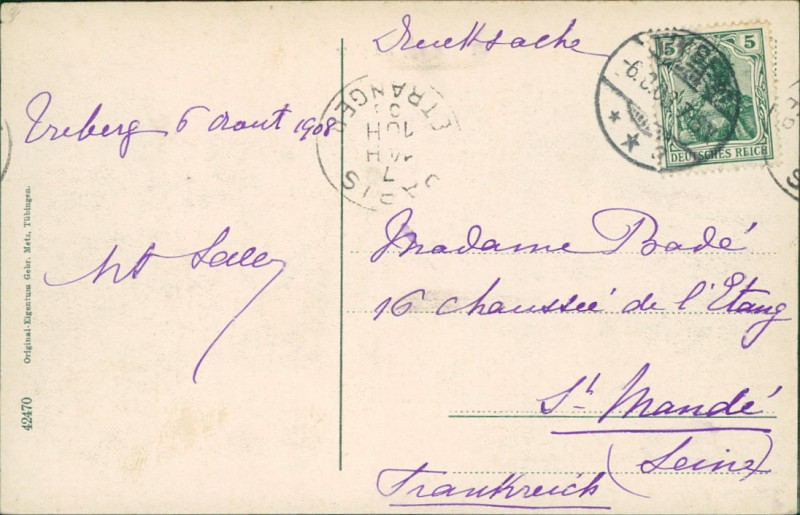 Treberg 6 Aout 1908
Original-Eigentum Gebr. Metz, Tübingen.
42470
Drucksache
5 5
DEUTSCHES REICH
-6.
PARIS
ETRANGER
7
10H
Madame Badé
16 chaussée de l'Etang
St Mandé
(Seine)
Frankreich